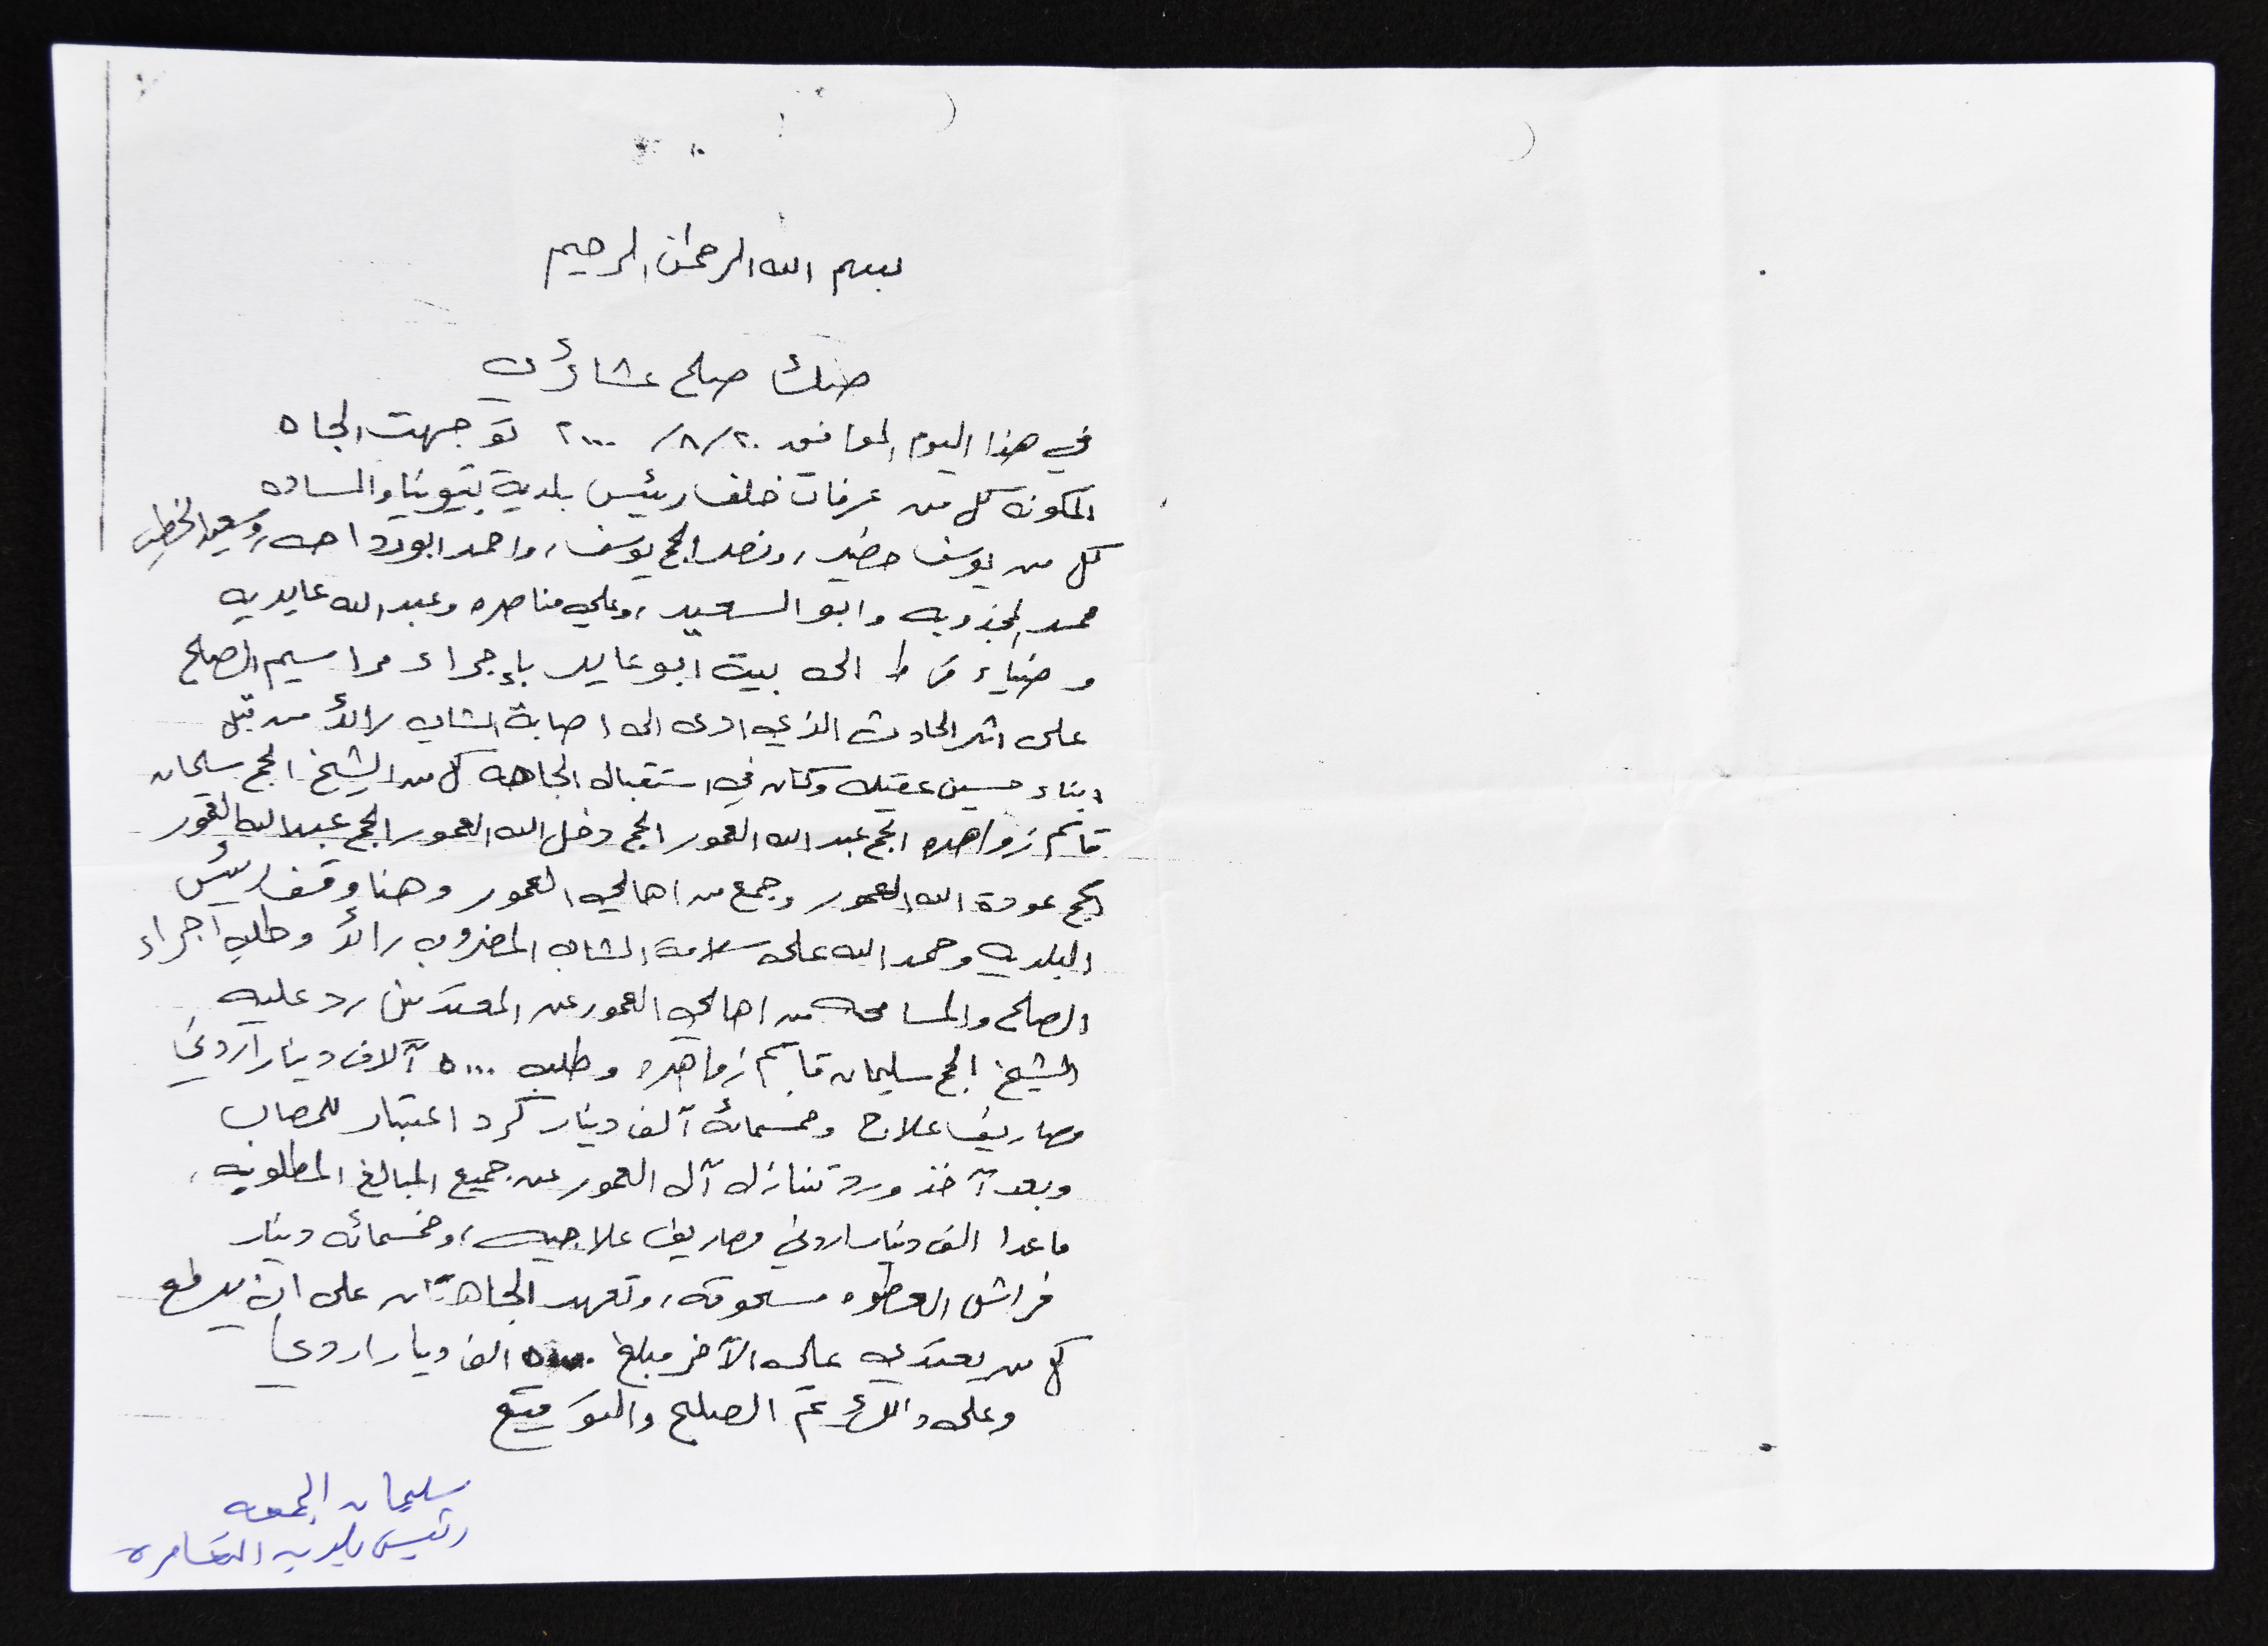 بسم الله الرحمن الرحيم
صك صلح عشائري
في هذا اليوم الموافق ٢٠/٨/٢٠٠٠ توجهت الجاه
المكونة كل من عرفات خلف رئيس بلدية بتيونيا والساده
كل من يوسف خضير، ونصر الحج يوسف، واحمد ابو رداحه، وسعيد الخطيب
محمد وابو السعيد، وعلي مناصره وعبد الله عايديه
وضياء قرط الى بيت ابو عايد بإجراء مراسيم الصلح
على اثر الحادث الذي ادى الى اصابة الشاب رائد من قبل
ابناء حسين عقيل وكان في استقبال الجاهه كل من الشيخ الحج سليمان
قاسم زواهره الحج عبد الله العمور الحج دخل الله العمور الحج عبد الله العمور
الحج عودة الله العمور وجمع من اهالي العمور وهنا وقف رئيس
البلديه وحمد الله على سلامة الشاب المضروب رائد وطلب اجراء
الصلح والمسامحه من اهالي العمور عن المعتدين رد عليه
الشيخ الحج سليمان قاسم زواهره وطلب ٥٠٠٠ آلاف دينار اردني
مصاريف علاج وخمسمائة آلف دينار كرد اعتبار للمصاب
وبعد آخذ ورد تنازل آل العمور عن جميع المبالغ المطلوبه،
ما عدا الف دينار اردني مصاريف علاجيه، وخمسمائه دينار
فراش العطوه مسحوقه، وتعهد الجاهتان على ان يدفع
كل من يعتدي على الآخر مبلغ الف دينار اردني
وعلى ذالك تم الصلح والتوقيع
سليمان الجمعه
رئيس بلديه التعامره